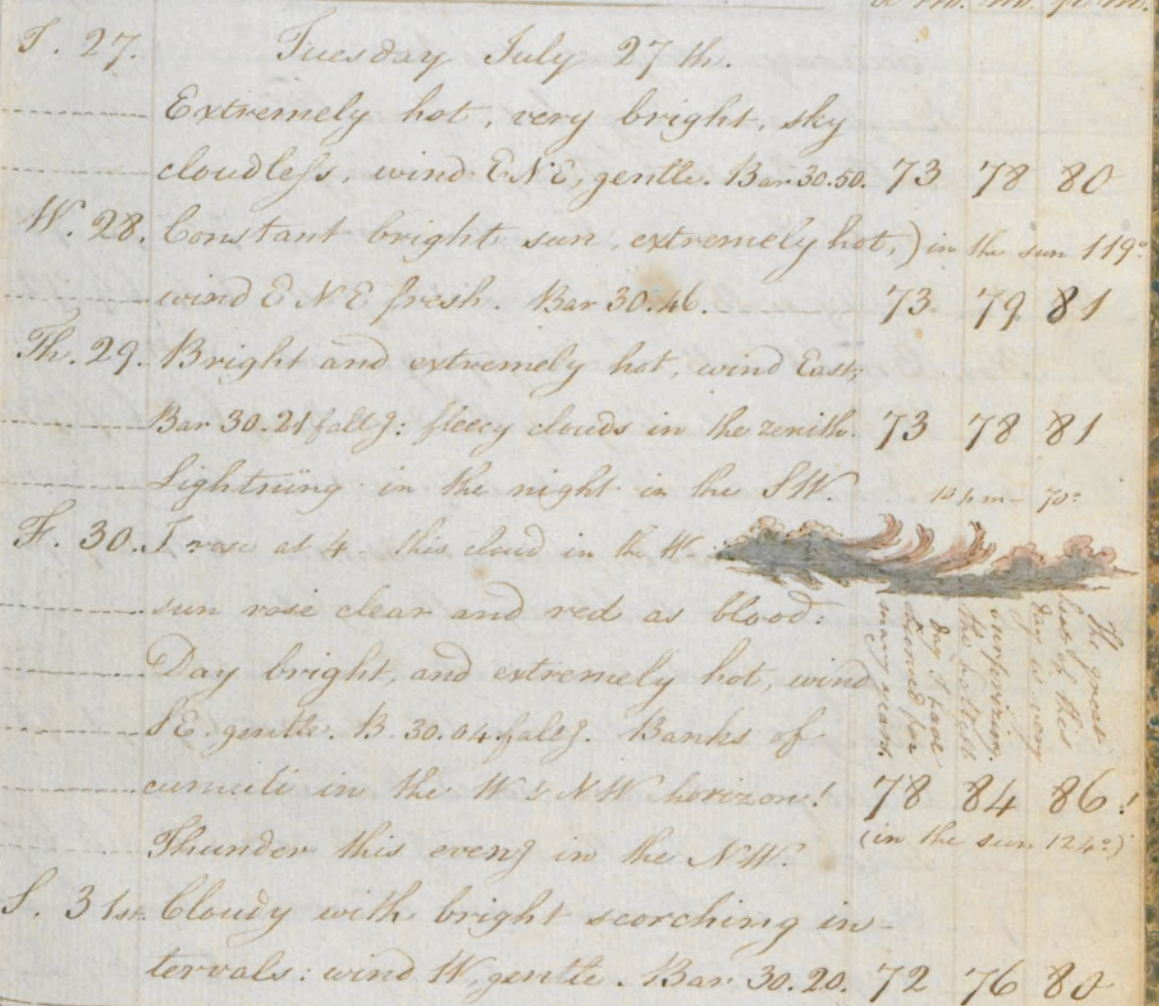 a m. m. p. m.
T. 27. Tuesday July 27th.
Extremely hot, very bright, sky
cloudless, wind ENE, gentle. Bar 30.50. 73 78 80
W. 28. Constant bright sun, extremely hot,) in the sun 119°
wind ENE fresh. Bar 30.46. 73 79 81
Th. 29. Bright and extremely hot, wind East;
Bar 30.21 fallg: fleecy clouds in the zenith. 73 78 81
Lightning in the night in the SW. 10 p m 70°
F. 30. I rose at 4. this cloud in the W.
sun rose clear and red as blood:
Day bright, and extremely hot, wind
SE. gentle. B 30.04 fallg. Banks of
cumuli in the W & NW horizon! 78 84 86!
(in the sun 124°)
Thunder this eveng in the NW.
The great
heat of this
day is very
surprizing.
the hottest
day I have
known for
many years.
S. 31st. Cloudy with bright scorching in-
tervals: wind W, gentle. Bar 30.20. 72 76 80